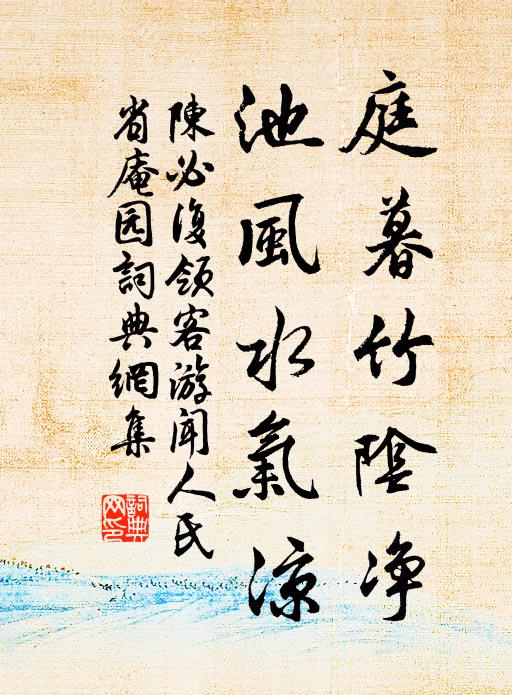 庭暮竹陰净
池風水氣凉
陳必復領客游闻人氏
省庵园詞典網集
詞典网印